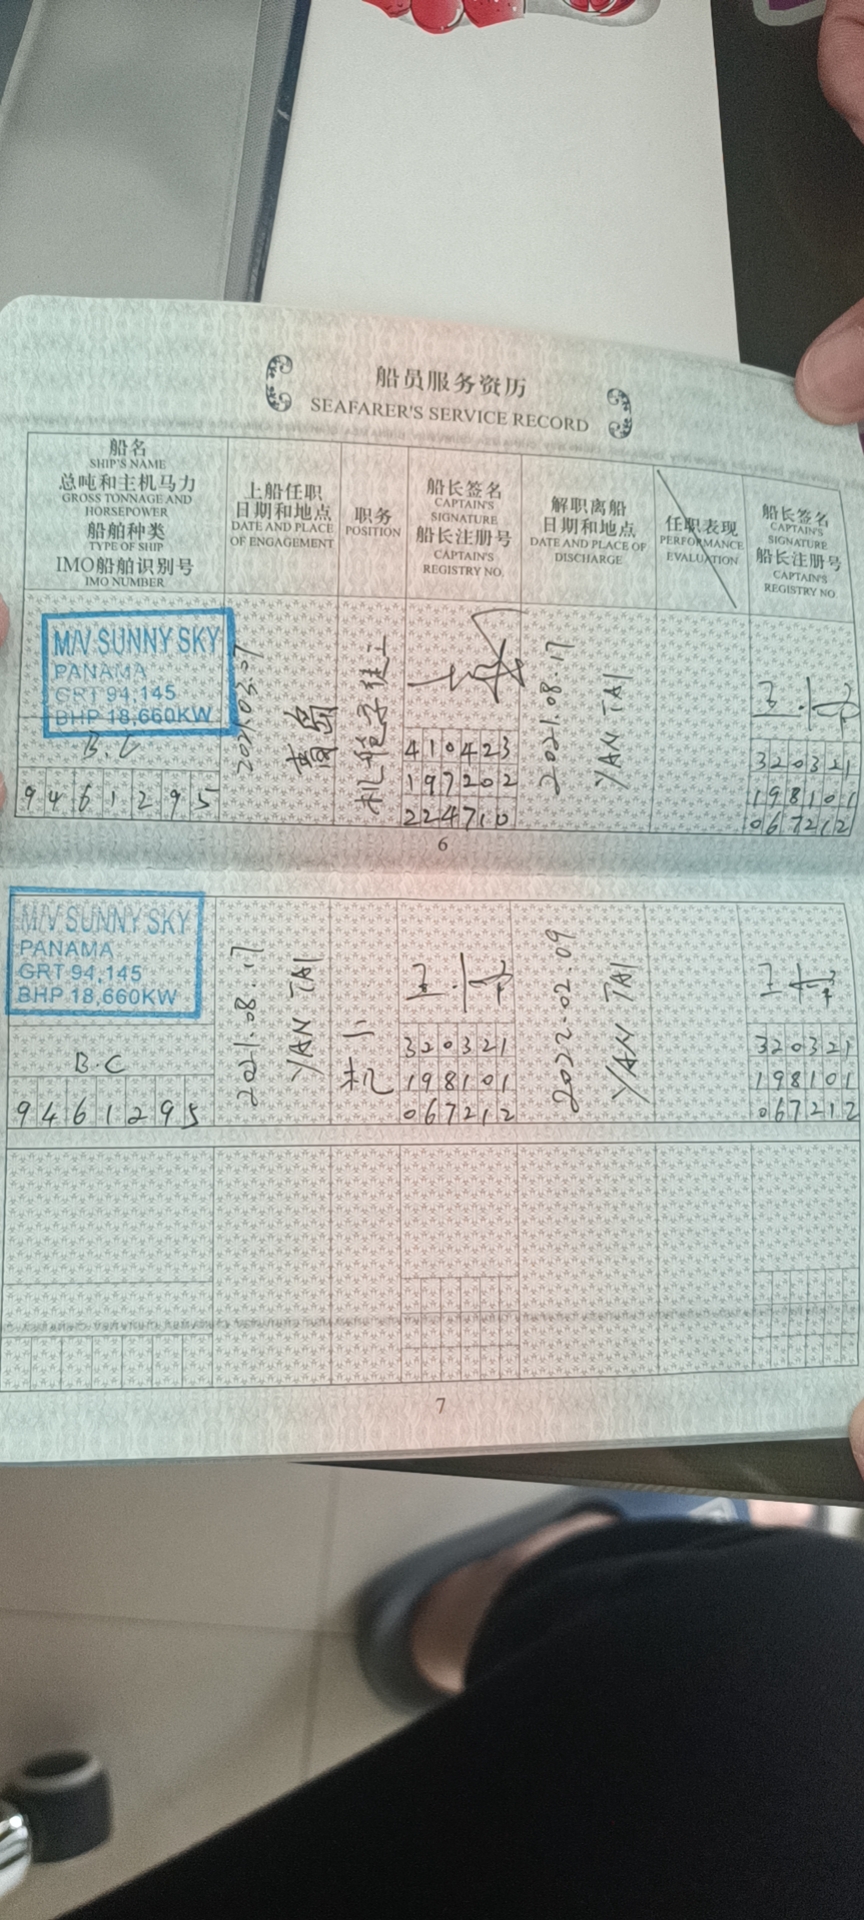 船员服务资历
SEAFARER'S SERVICE RECORD
船名
SHIP'S NAME
总吨和主机马力
GROSS TONNAGE AND
HORSEPOWER
船舶种类
TYPE OF SHIP
IMO船舶识别号
IMO NUMBER
上船任职
日期和地点
DATE AND PLACE
OF ENGAGEMENT
职务
POSITION
船长签名
CAPTAIN'S
SIGNATURE
船长注册号
CAPTAIN'S
REGISTRY NO.
解职离船
日期和地点
DATE AND PLACE OF
DISCHARGE
任职表现
PERFORMANCE
EVALUATION
船长签名
CAPTAIN'S
SIGNATURE
船长注册号
CAPTAIN'S
REGISTRY NO
M/V SUNNY SKY
PANAMA
GRT 94,145
BHP 18,660KW
B.C
9461295
2021.03.07
青岛
机舱实习生
410423
197202
224710
2021.08.17
YAN TAI
320321
198101
067212
6
M/V SUNNY SKY
PANAMA
GRT 94,145
BHP 18,660KW
B.C
9461295
2021.08.17
YAN TAI
机工
320321
198101
067212
2022.02.09
YAN TAI
320321
198101
067212
7